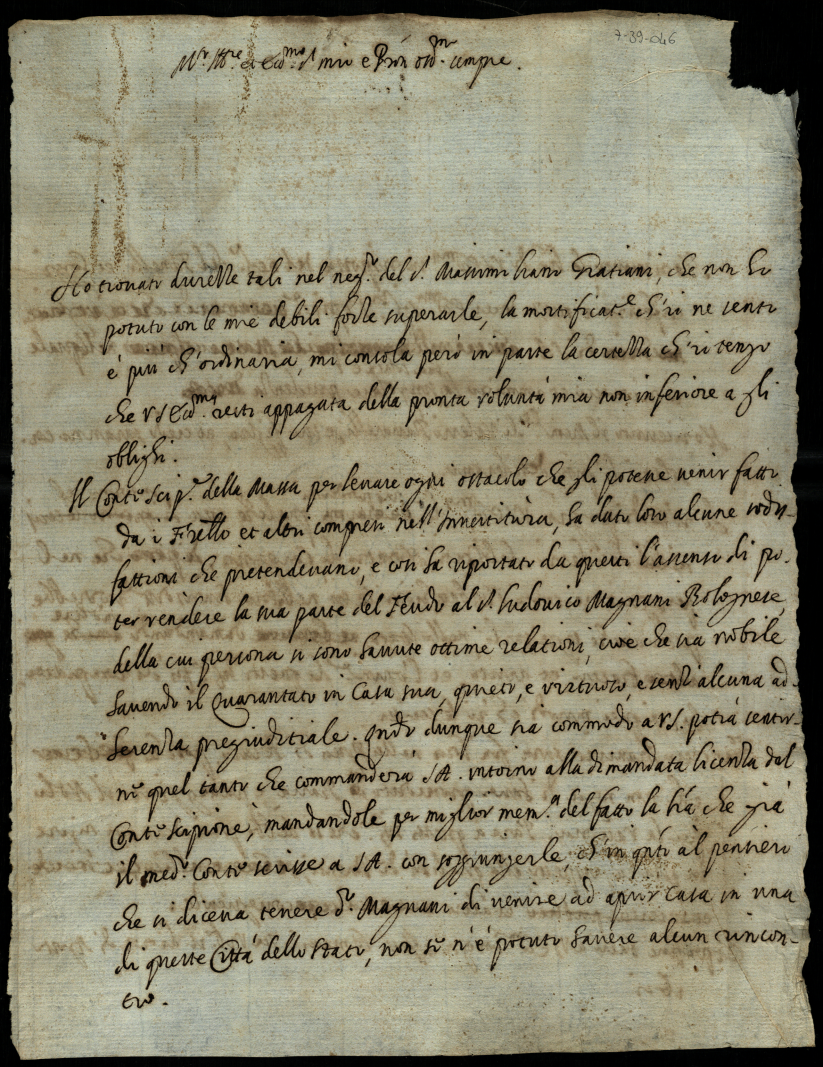 7-39-046
M.to Ill.re et Ecc.mo S.r mio e Prōn oss.mo sempre.
Ho trovato durezze tali nel neg.o del S. Massimiliano Gratiani, che non ho
potuto con le mie debili forze superarle, la mortificat.e ch'io ne sento
é piú ch'ordinaria, mi consola peró in parte la certezza ch'io tengo
che V S Ecc.ma resti appagata della pronta voluntá mia non inferiore a gli
oblighi.
Il Conte Scip.e della Massa per levare ogni ostacolo che gli potesse venir fatto
da i et altri compresi nell'Investitura, ha dato loro alcune sodis-
fattioni che pretendevano, e cosi ha riportato da questi l'assenso di po-
ter vendere la sua parte del Feudo al S. Ludovico Magnani Bolognese,
della cui persona si sono havute ottime relationi, cioe che sia nobile
havendo il Quarantato in Casa sua, quieto, e virtuoso, e senza alcuna ad-
herenza pregiuditiale. Qnđo dunque sia commodo a V S. potrá sentir-
ne quel tanto che commanderá S A. intorno alla dimandata licenza dal
Conte Scipione, mandandole per miglior mem.a del fatto la lrá che giá
il med.o Conte scrisse a S A. con soggiungerle, ch'in qnto al pensiero
che si diceva tenere d.o Magnani di venire ad aprir Casa in una
di queste Cittá dello stato, non se n'é potuto havere alcun rincon-
tro.